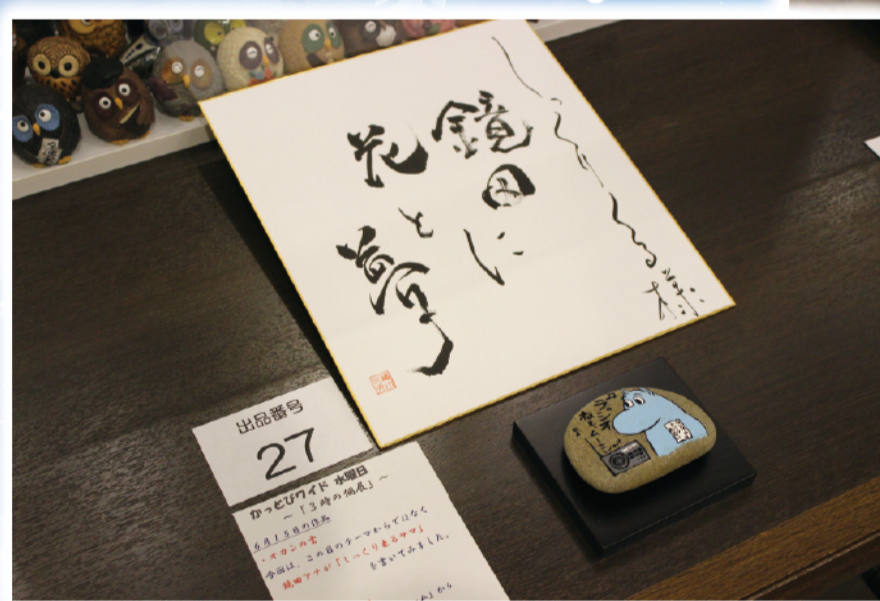 しっくりくる様
鏡田に
花と夢
出品番号
27
かっとびワイド 水曜日
～「3時の個展」～
6月15日の作品
・オカンの書
今回は、この日のテーマからではなく
鏡田アナが「しっくり来るサマ」
を書いてみました。
から
ラジオ